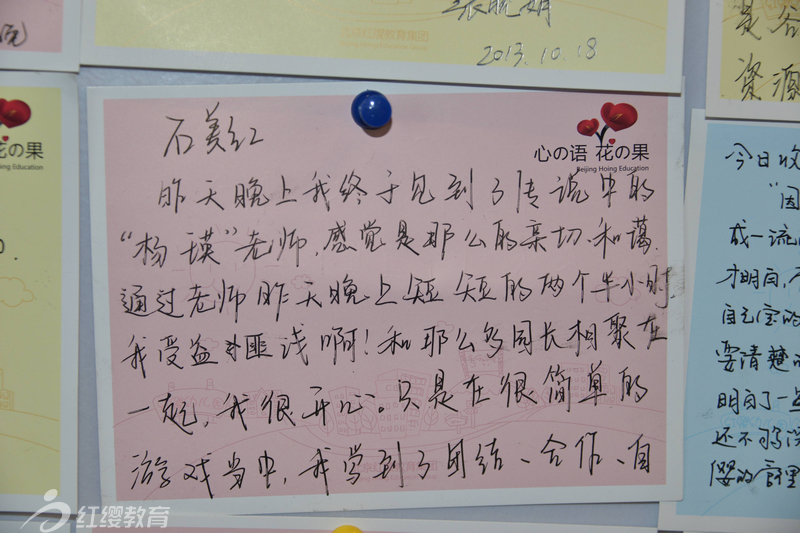 2013.10.18
是谷
资源
の果
Education
石美红
心の语 花の果
Beijing Hoing Education
昨天晚上我终于见到了传说中的
“杨瑛”老师,感觉是那么的亲切、和蔼.
通过老师昨天晚上短短的两个半小时,
我受益匪浅啊!和那么多园长相聚在
一起,我很开心。只是在很简单的
游戏当中,我学到了团结、合作、自
今日收
“因
成一流
才明白,不
自己室的
要清楚
明白了一些
还不够深
红缨教育